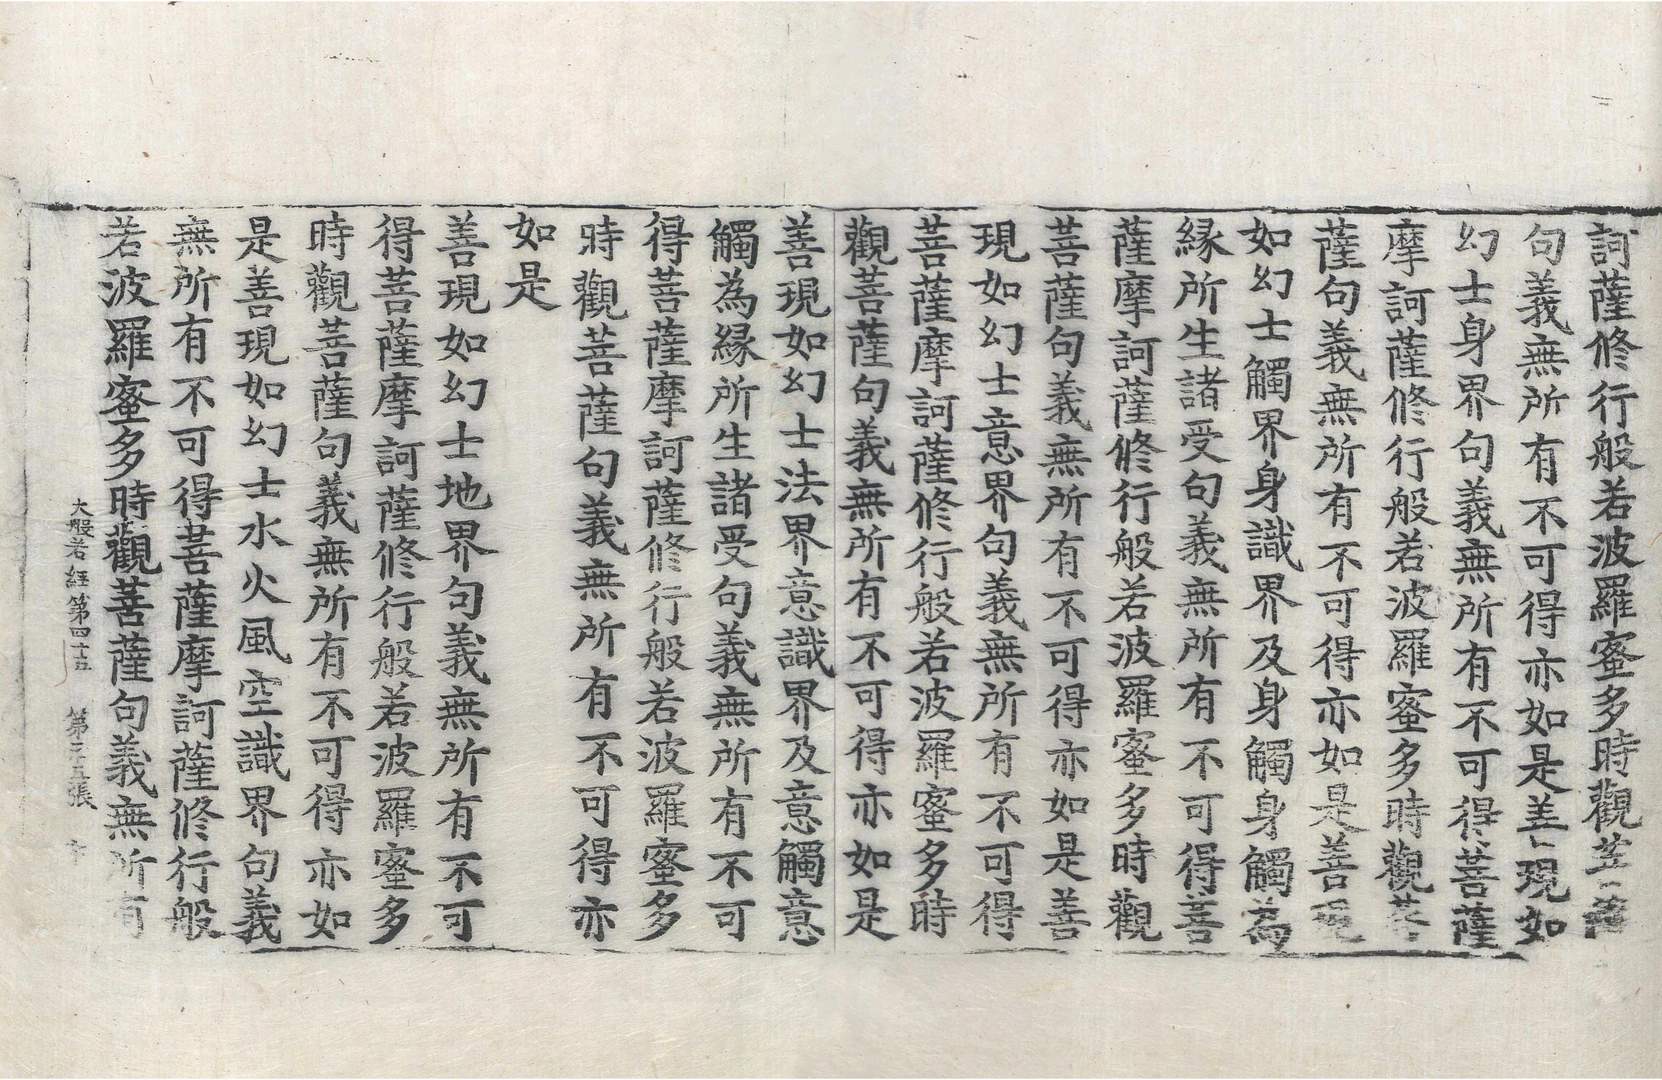 訶薩修行般若波羅蜜多時觀菩薩
句義無所有不可得亦如是善現如
幻士身界句義無所有不可得菩薩
摩訶薩修行般若波羅蜜多時觀菩
薩句義無所有不可得亦如是善現
如幻士觸界身識界及身觸身觸為
縁所生諸受句義無所有不可得菩
薩摩訶薩修行般若波羅蜜多時觀
菩薩句義無所有不可得亦如是善
現如幻士意界句義無所有不可得
菩薩摩訶薩修行般若波羅蜜多時
觀菩薩句義無所有不可得亦如是
善現如幻士法界意識界及意觸意
觸為縁所生諸受句義無所有不可
得菩薩摩訶薩修行般若波羅蜜多
時觀菩薩句義無所有不可得亦
如是
善現如幻士地界句義無所有不可
得菩薩摩訶薩修行般若波羅蜜多
時觀菩薩句義無所有不可得亦如
是善現如幻士水火風空識界句義
無所有不可得菩薩摩訶薩修行般
若波羅蜜多時觀菩薩句義無所有
大般若經第四十五 第二十五張